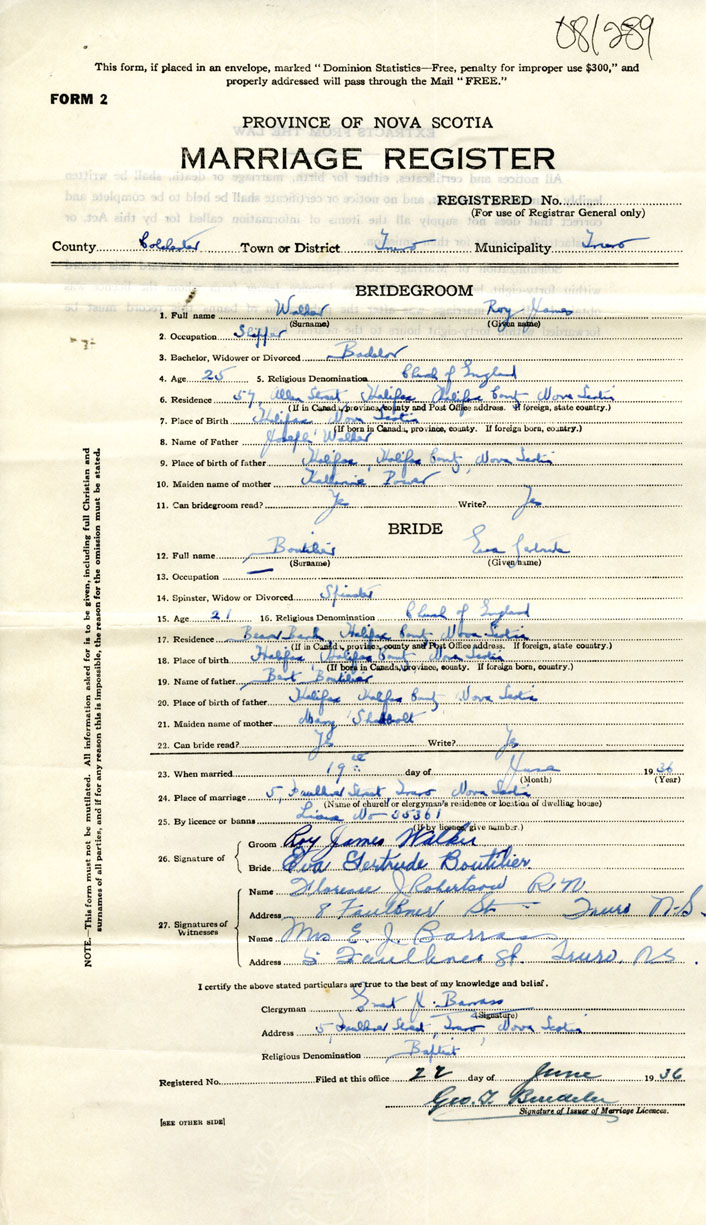 08/289
This form, if placed in an envelope, marked "Dominion Statistics—Free, penalty for improper use $300," and
properly addressed will pass through the Mail "FREE."
FORM 2
PROVINCE OF NOVA SCOTIA
MARRIAGE REGISTER
REGISTERED No.
(For use of Registrar General only)
County Colchester Town or District Truro Municipality Truro
BRIDEGROOM
1. Full name Walker Roy James
(Surname) (Given name)
2. Occupation
3. Bachelor, Widower or Divorced Bachelor
4. Age 25 5. Religious Denomination Church of England
6. Residence 57, Allen Street, Halifax Halifax County Nova Scotia
(If in Canada, province, county and Post Office address. If foreign, state country.)
7. Place of Birth Halifax Nova Scotia
(If born in Canada, province, county. If foreign born, country.)
8. Name of Father Joseph Walker
9. Place of birth of father Halifax, Halifax County, Nova Scotia
10. Maiden name of mother Katherine Power
11. Can bridegroom read? Yes Write? Yes
BRIDE
12. Full name Boutilier Eva Gertrude
(Surname) (Given name)
13. Occupation —
14. Spinster, Widow or Divorced Spinster
15. Age 21 16. Religious Denomination Church of England
17. Residence Bear Bank, Halifax County Nova Scotia
(If in Canada, province, county and Post Office address. If foreign, state country.)
18. Place of birth Halifax, Halifax County Nova Scotia
(If born in Canada, province, county. If foreign born, country.)
19. Name of father Bert Boutilier
20. Place of birth of father Halifax Halifax County Nova Scotia
21. Maiden name of mother Mary
22. Can bride read? Yes Write? Yes
23. When married 19th day of June 1936
(Month) (Year)
24. Place of marriage 5, Faulkner Street, Truro Nova Scotia
(Name of church or clergyman's residence or location of dwelling house)
25. By licence or banns License No 35361
(If by licence, give number.)
26. Signature of Groom Roy James Walker
Bride Eva Gertrude Boutilier
27. Signatures of Witnesses
Name Florence J Robertson R.N.
Address 8 Faulkner St — Truro N.S.
Name Mrs E. J. Barrass
Address 5 Faulkner St. Truro, N.S.
NOTE.—This form must not be mutilated. All information asked for is to be given, including full Christian and
surnames of all parties, and if for any reason this is impossible, the reason for the omission must be stated.
I certify the above stated particulars are true to the best of my knowledge and belief.
Clergyman Barrass
(Signature)
Address 5 Faulkner Street, Truro Nova Scotia
Religious Denomination Baptist
Registered No. Filed at this office 22 day of June 1936
Geo. T.
Signature of Issuer of Marriage Licences.
[SEE OTHER SIDE]